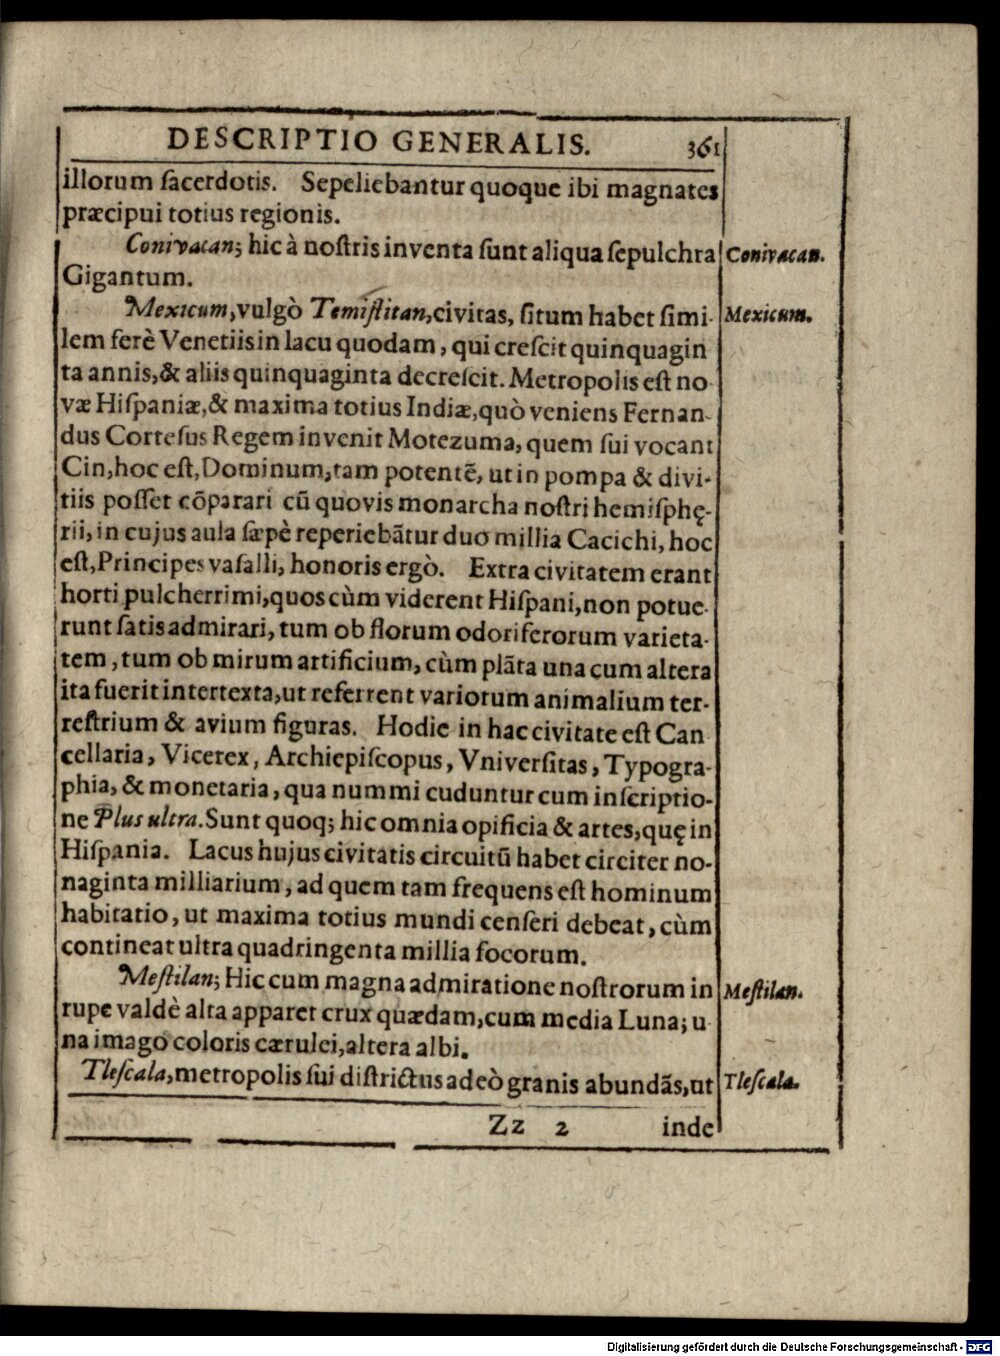 DESCRIPTIO GENERALIS. 361
illorum ſacerdotis. Sepeliebantur quoque ibi magnates
præcipui totius regionis.
Conivacan; hic à noſtris inventa ſunt aliqua ſepulchra
Conivacan.
Gigantum.
Mexicum, vulgò Temiſtitan, civitas, ſitum habet ſimi-
Mexicum.
lem ferè Venetiis in lacu quodam, qui creſcit quinquagin
ta annis, & aliis quinquaginta decreſcit. Metropolis eſt no-
væ Hiſpaniæ, & maxima totius Indiæ, quò veniens Fernan-
dus Corteſus Regem invenit Motezuma, quem ſui vocant
Cin, hoc eſt, Dominum, tam potentẽ, ut in pompa & divi-
tiis poſſet cõparari cũ quovis monarcha noſtri hemiſphę-
rii, in cujus aula ſæpè reperiebãtur duo millia Cacichi, hoc
eſt, Principes vaſalli, honoris ergò. Extra civitatem erant
horti pulcherrimi, quos cùm viderent Hiſpani, non potue-
runt ſatis admirari, tum ob florum odoriferorum varieta-
tem, tum ob mirum artificium, cùm plãta una cum altera
ita fuerit intertexta, ut referrent variorum animalium ter-
reſtrium & avium figuras. Hodie in hac civitate eſt Can
cellaria, Vicerex, Archiepiſcopus, Vniverſitas, Typogra-
phia, & monetaria, qua nummi cuduntur cum inſcriptio-
ne Plus ultra. Sunt quoq; hic omnia opificia & artes, quę in
Hiſpania. Lacus hujus civitatis circuitũ habet circiter no-
naginta milliarium, ad quem tam frequens eſt hominum
habitatio, ut maxima totius mundi cenſeri debeat, cùm
contineat ultra quadringenta millia focorum.
Meſtilan; Hic cum magna admiratione noſtrorum in
Meſtilan.
rupe valdè alta apparet crux quædam, cum media Luna; u-
na imago coloris cærulei, altera albi.
Tleſcala, metropolis ſui diſtrictus adeò granis abundãs, ut
Tleſcala.
Zz 2 inde
Digitalisierung gefördert durch die Deutsche Forschungsgemeinschaft - DFG